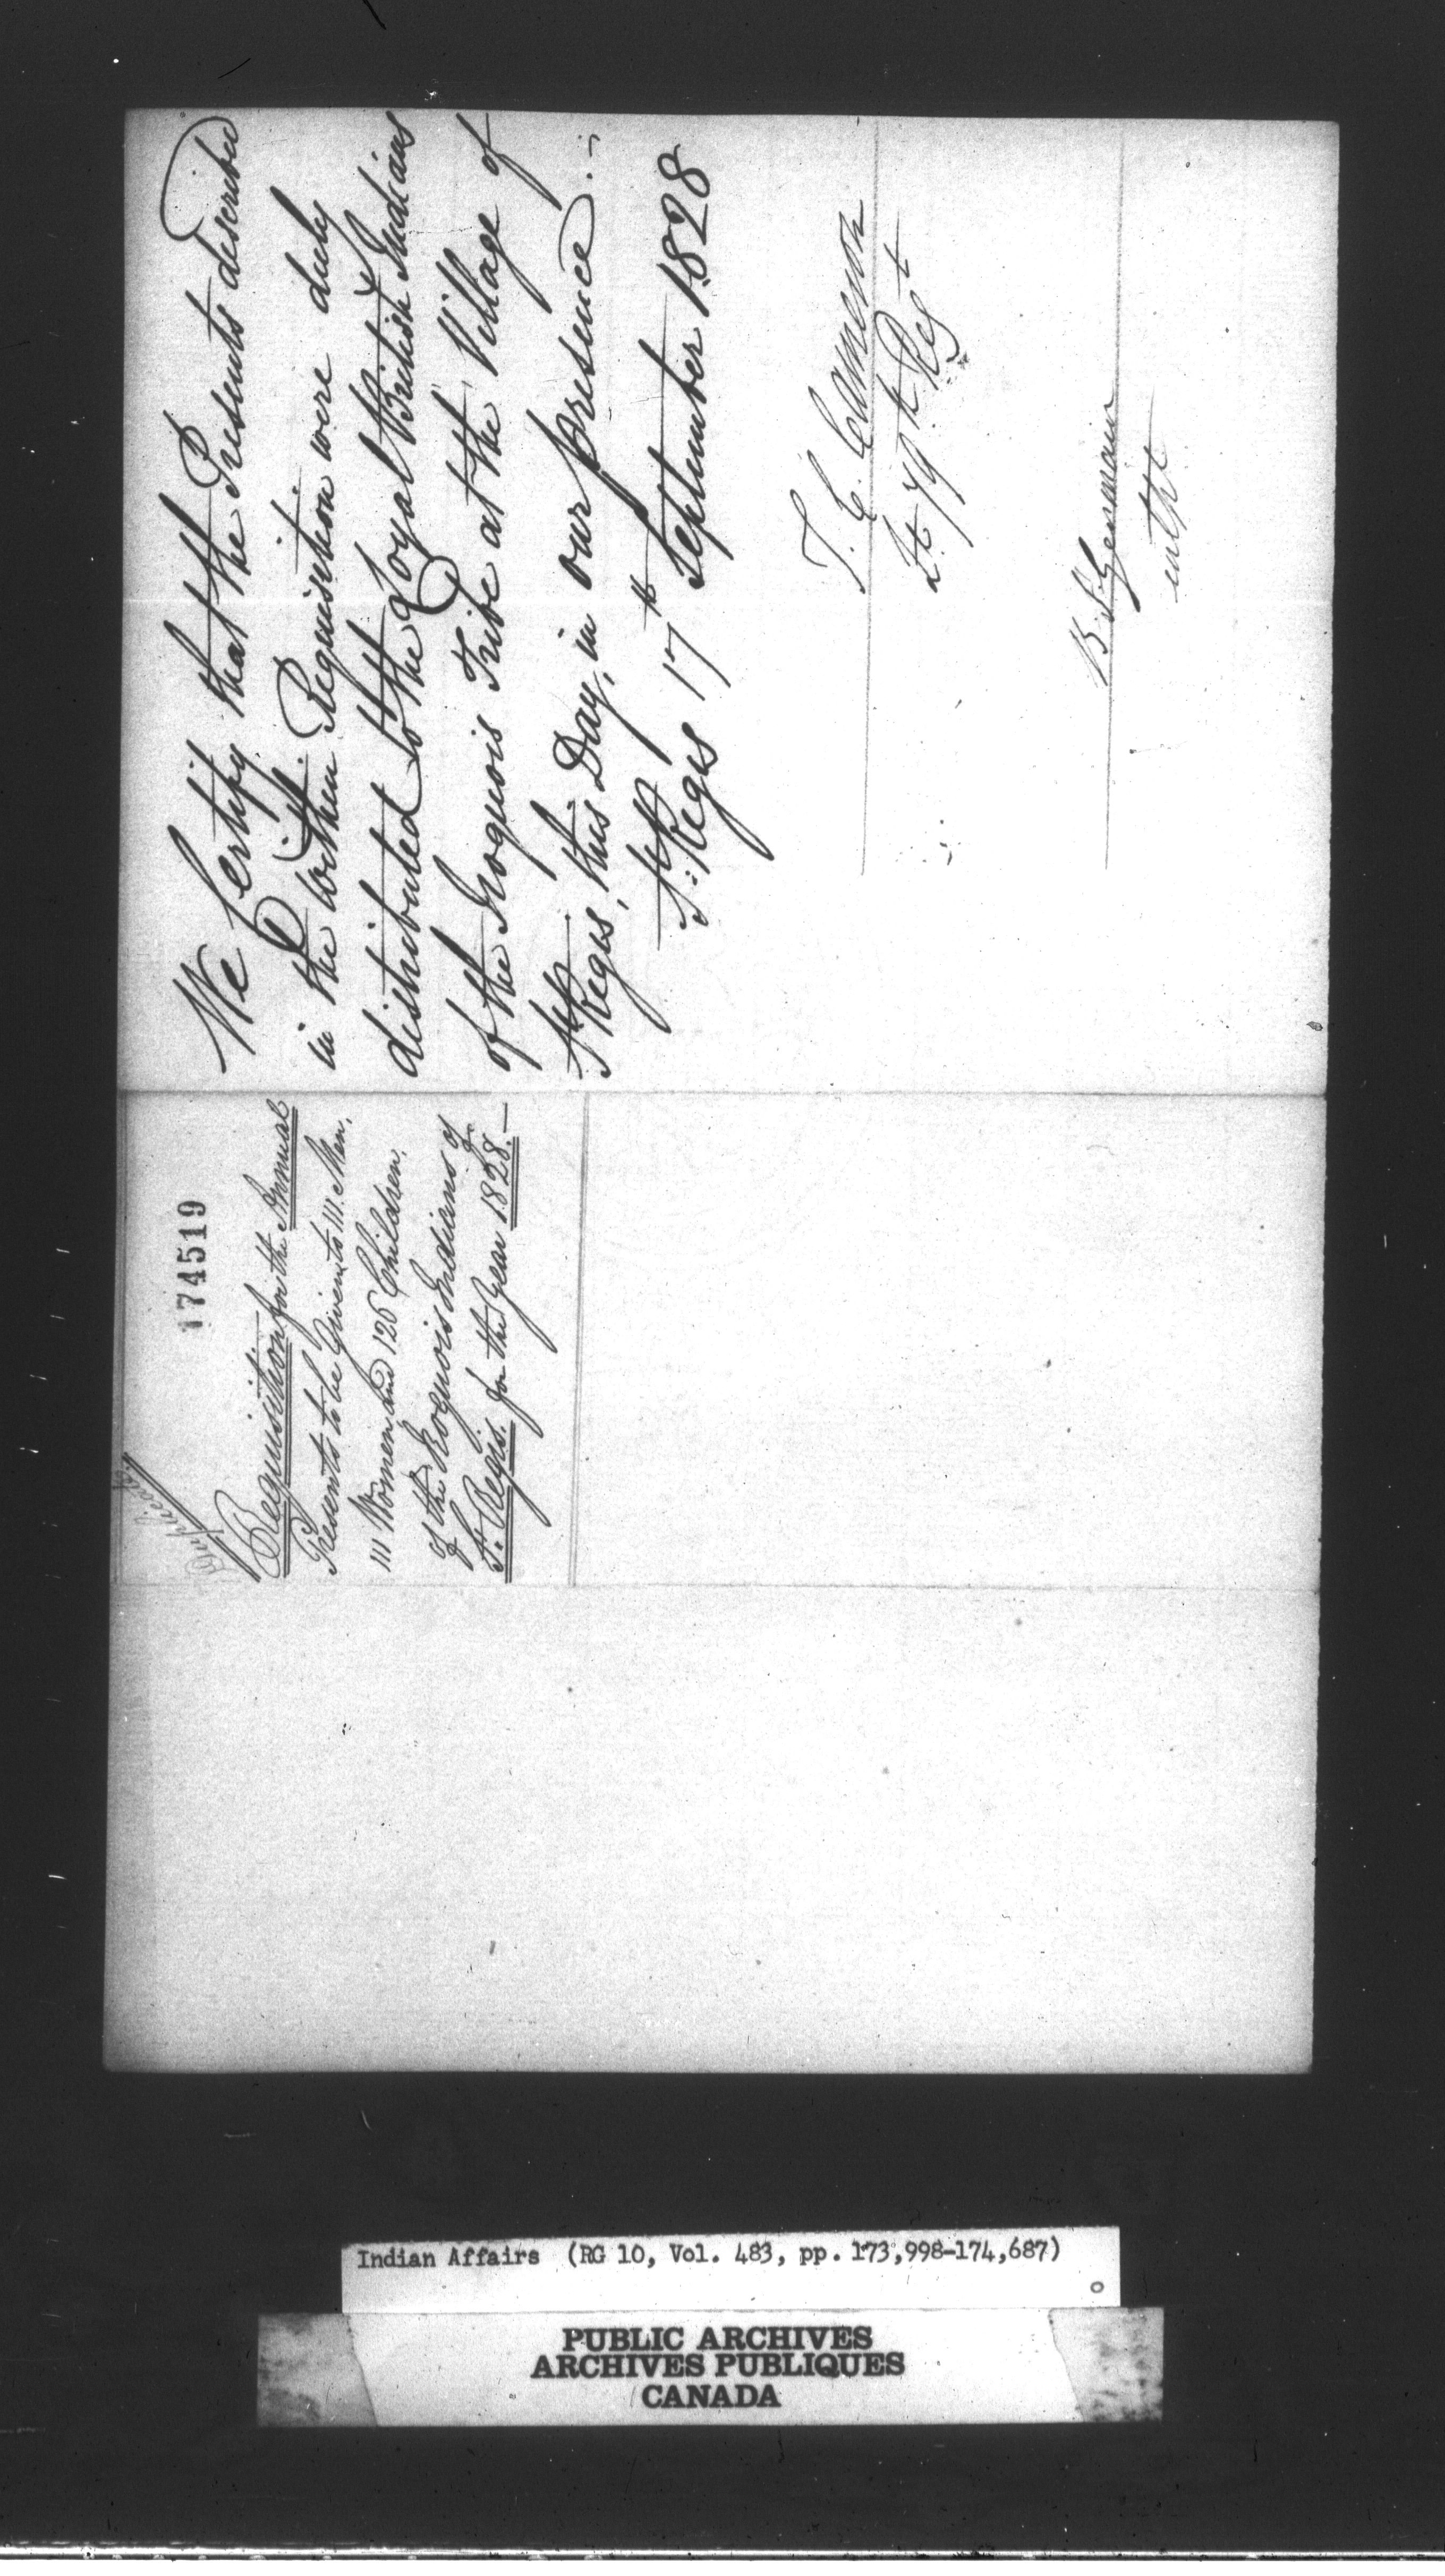 174519
Duplicate
Requisition for the Annual
Presents to be Given to 111 Men,
111 Women, and 126 Children,
of the Iroquois Indians of
St. Regis. for the Year 1828.—
We Certify that the Presents described
in the within Requisition were duly
distributed to the Loyal British Indians
of the Iroquois Tribe at the Village of
St. Regis, this Day, in our presence.
St. Regis 17th September 1828
T. C. Cameron
Lt 79th Regt
B. St Germain
intpt
Indian Affairs (RG 10, Vol. 483, pp. 173,998-174,687)
PUBLIC ARCHIVES
ARCHIVES PUBLIQUES
CANADA